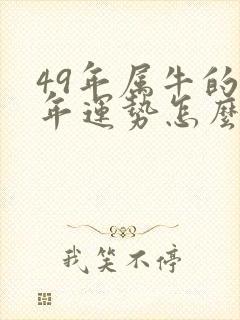 49年属牛的
年运势怎麼
我笑不停